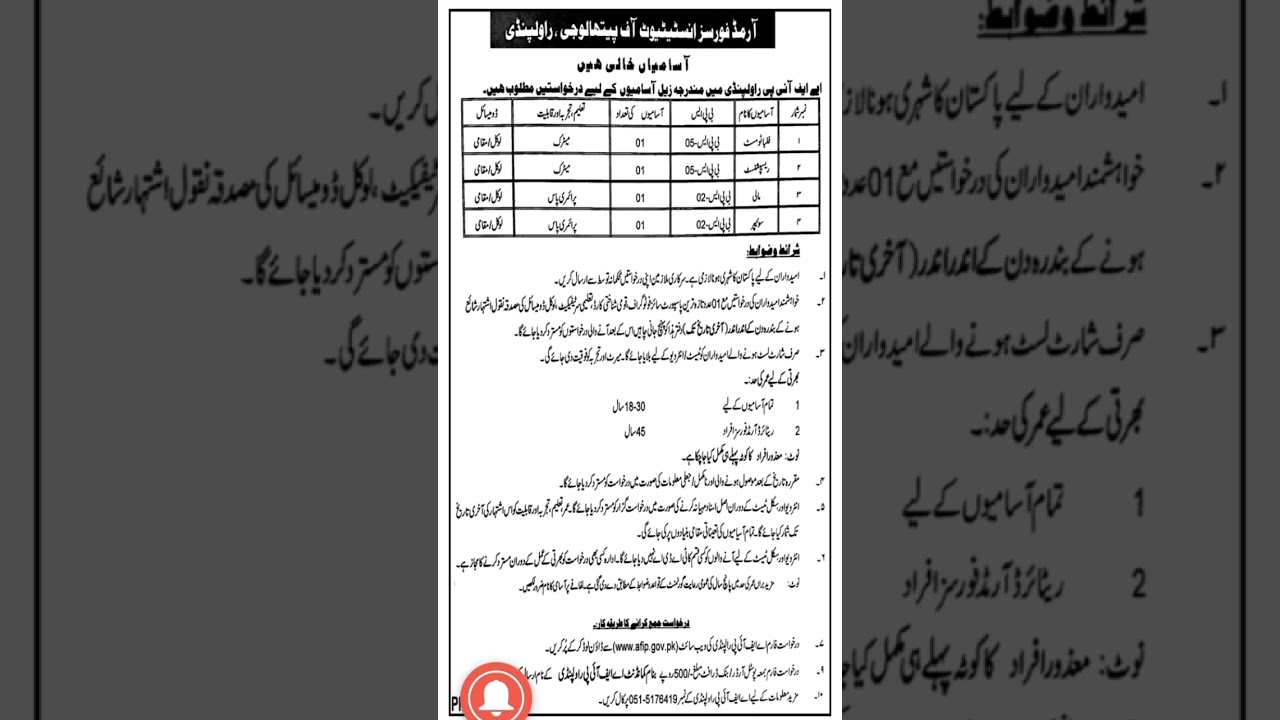 آرمڈ فورسز انسٹیٹیوٹ آف پیتھالوجی، راولپنڈی
آسامیاں خالی ہیں
اے ایف آئی پی راولپنڈی میں مندرجہ زیل آسامیوں کے لیے درخواستیں مطلوب ہیں۔
نمبر شمار آسامیوں کا نام بی پی ایس آسامیوں کی تعداد تعلیم، تجربہ اور قابلیت ڈومیسائل
۱ فلباٹومسٹ بی پی ایس-05 01 میٹرک لوکل/مقامی
۲ ریسپشنسٹ بی پی ایس-05 01 میٹرک لوکل/مقامی
۳ مالی بی پی ایس-02 01 پرائمری پاس لوکل/مقامی
۴ سویپر بی پی ایس-02 01 پرائمری پاس لوکل/مقامی
شرائط و ضوابط:
۱۔ امیدواران کے لیے پاکستان کا شہری ہونا لازمی ہے۔ سرکاری ملازمین اپنی درخواستیں محکمانہ توسط سے ارسال کریں۔
۲۔ خواہشمند امیدواران کی درخواستیں مع 01 عدد تازہ ترین پاسپورٹ سائز فوٹوگراف، قومی شناختی کارڈ، تعلیمی سرٹیفکیٹ، لوکل ڈومیسائل کی مصدقہ نقول اشتہار شائع
ہونے کے بندرہ دن کے اندر اندر (آخری تاریخ تک) دفتر ہذا کو پہنچ جانی چاہیں اس کے بعد آنے والی درخواستوں کو مسترد کر دیا جائے گا۔
۳۔ صرف شارٹ لسٹ ہونے والے امیدواران کو ٹیسٹ/انٹرویو کے لیے بلایا جائے گا۔ میرٹ اور تجربہ کو فوقیت دی جائے گی۔
بھرتی کے لیے عمر کی حد:۔
1 تمام آسامیوں کے لیے 18-30 سال
2 ریٹائرڈ آرمڈ فورسز افراد 45 سال
نوٹ: معذور افراد کا کوٹہ پہلے ہی مکمل کیا جا چکا ہے۔
۴۔ مقررہ تاریخ کے بعد موصول ہونے والی اور نامکمل/جعلی معلومات کی صورت میں درخواست کو مسترد کر دیا جائے گا۔
۵۔ انٹرویو اور سکل ٹیسٹ کے دوران اصل اسناد مہیا نہ کرنے کی صورت میں درخواست گزار کو مسترد کر دیا جائے گا۔ عمر، تعلیم، تجربہ اور قابلیت کو اس اشتہار کی آخری تاریخ
تک شمار کیا جائے گا۔ تمام آسامیوں کی تعیناتی مقامی بنیادوں پر کی جائے گی۔
۶۔ انٹرویو اور سکل ٹیسٹ کے لیے آنے والوں کو کسی قسم کا ٹی اے ڈی اے نہیں دیا جائے گا۔ ادارہ کسی بھی درخواست کو بھرتی کے عمل کے دوران مسترد کرنے کا مجاز ہے۔
نوٹ: مزید براں عمر کی حد میں پانچ سال کی عمومی رعایت گورنمنٹ کے قواعد و ضوابط کے مطابق دے دی گئی ہے۔ لفافے پر آسامی کا نام ضرور لکھیں۔
درخواست جمع کرانے کا طریقہ کار:۔
۷۔ درخواست فارم اے ایف آئی پی راولپنڈی کی ویب سائٹ (www.afip.gov.pk) سے ڈاؤن لوڈ کر کے پُر کریں۔
۹۔ درخواست فارم بمعہ پوسٹل آرڈر/بنک ڈرافٹ مبلغ -/500 روپے بنام کمانڈنٹ اے ایف آئی پی راولپنڈی کے نام ارسال
۱۰۔ مزید معلومات کے لیے اے ایف آئی پی راولپنڈی کے نمبر 051-5176419 پر کال کریں۔